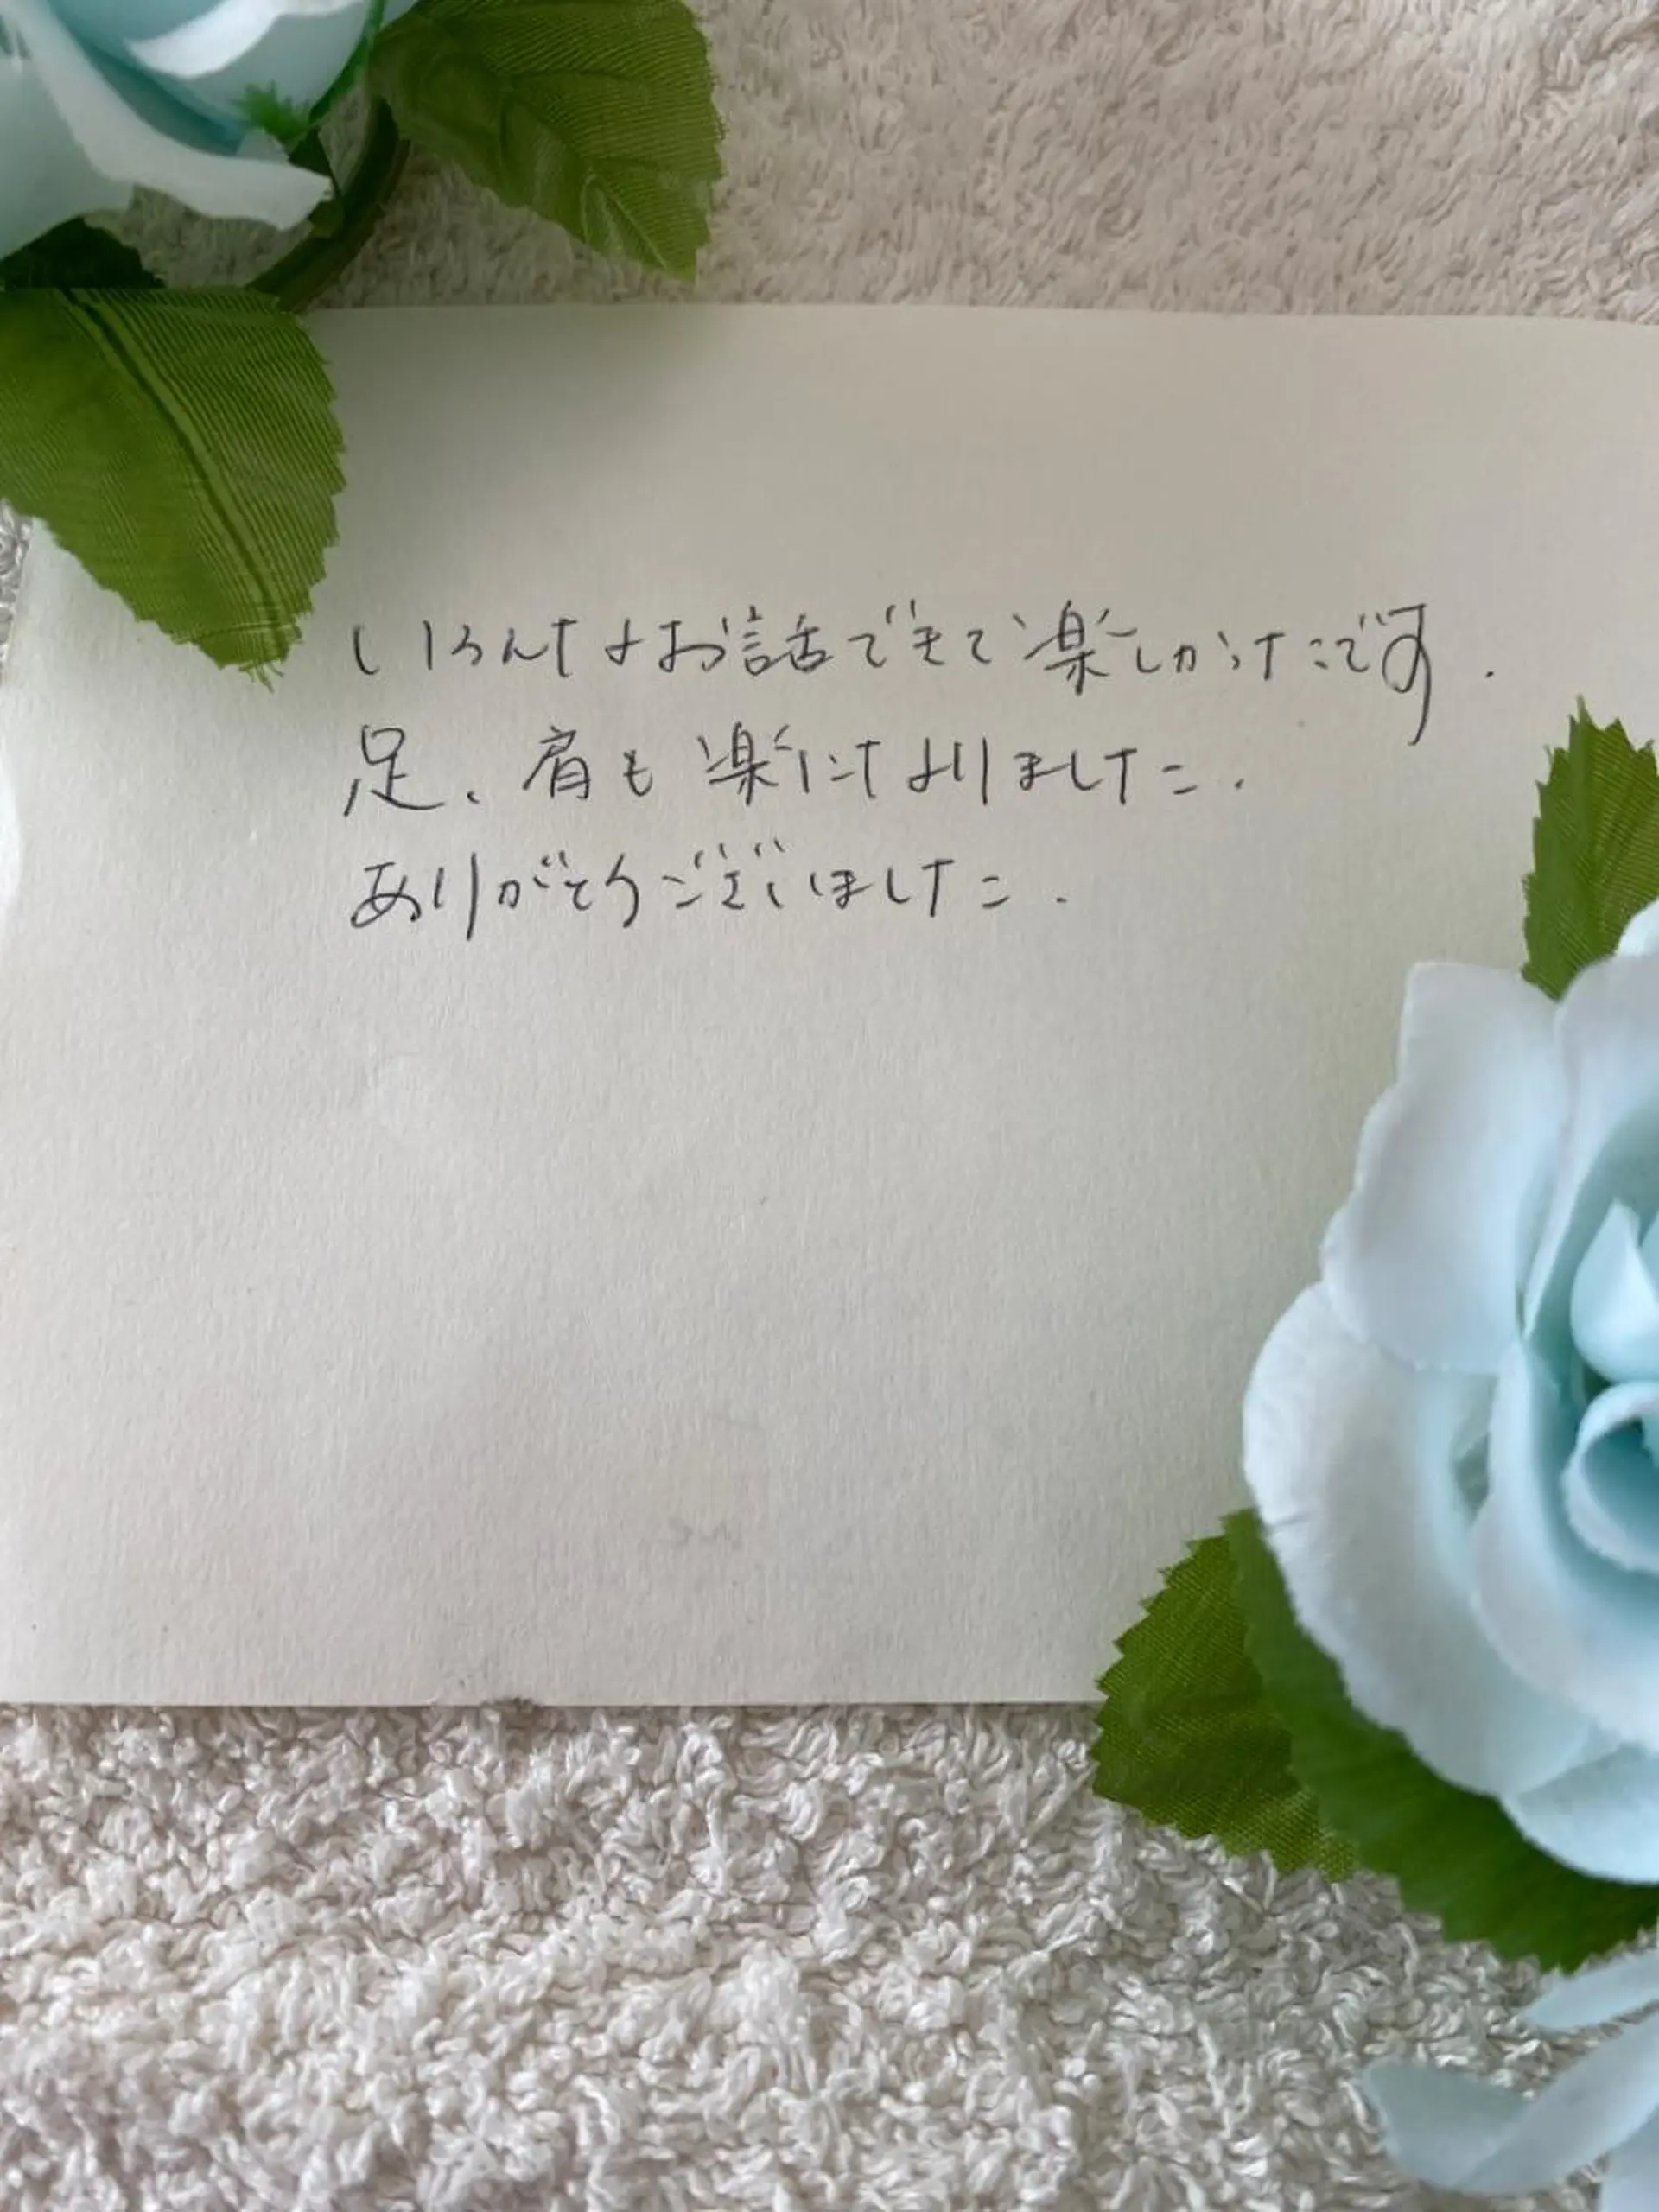 いろんなお話できて楽しかったです.
足、肩も楽になりました.
ありがとうございました.